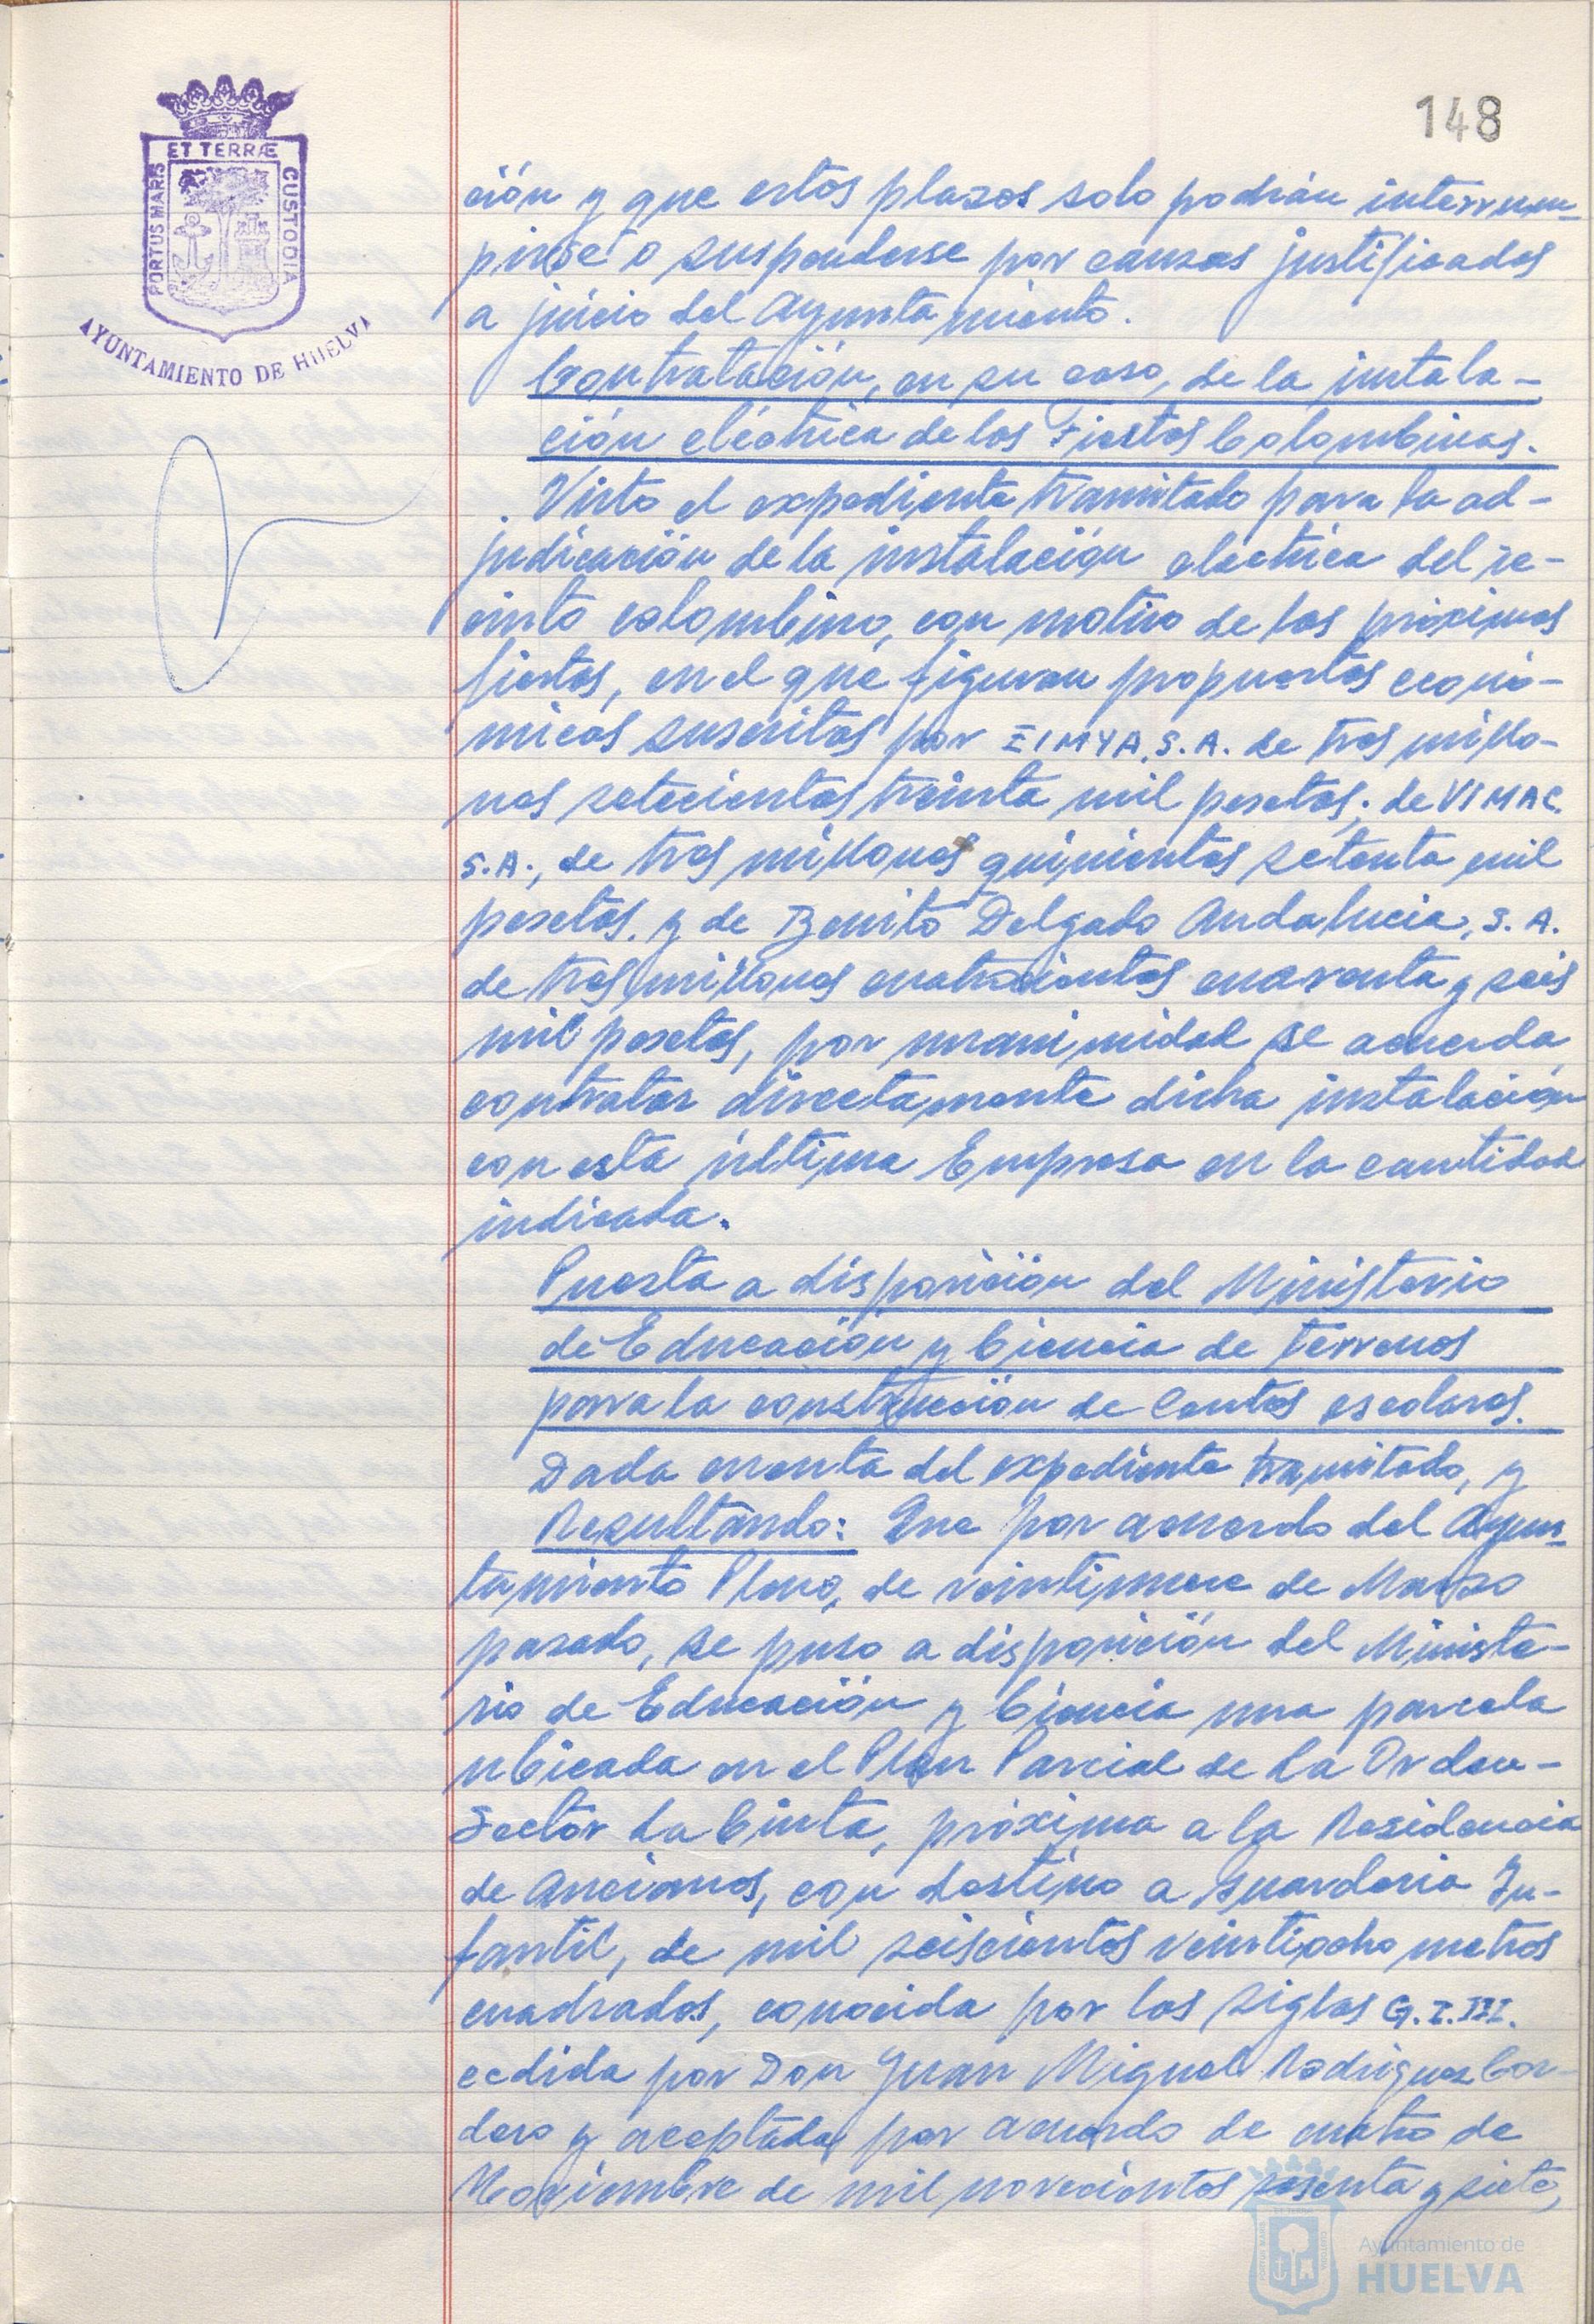 148
ET TERRÆ
PORTUS MARIS
CUSTODIA
AYUNTAMIENTO DE HUELVA
ción y que estos plazos solo podrán interrum-
pirse o suspenderse por causas justificadas
a juicio del Ayuntamiento.
Contratación, en su caso, de la instala-
ción eléctrica de las Fiestas Colombinas.
Visto el expediente tramitado para la ad-
judicación de la instalación electrica del re-
cinto colombino, con motivo de las próximas
fiestas, en el que figuran propuestas econó-
micas suscritas por EIMYA, S.A. de tres millo-
nes setecientas treinta mil pesetas; de VIMAC.
S.A., de tres millones quinientas setenta mil
pesetas. y de Benito Delgado Andalucia, S.A.
de tres millones cuatrocientas cuarenta y seis
mil pesetas, por unanimidad se acuerda
contratar directamente dicha instalación
con esta última Empresa en la cantidad
indicada.
Puesta a disposición del Ministerio
de Educación y Ciencia de terrenos
para la construcción de Centros escolares.
Dada cuenta del expediente tramitado, y
Resultando: Que por acuerdo del Ayun-
tamiento Pleno, de veintinueve de Marzo
pasado, se puso a disposición del Ministe-
rio de Educación y Ciencia una parcela
ubicada en el Plan Parcial de La Orden-
Sector La Cinta, próxima a la Residencia
de Ancianos, con destino a Guarderia In-
fantil, de mil seiscientos veintiocho metros
cuadrados, conocida por las siglas G.I.III.
cedida por Don Juan Miguel Rodriguez Cor-
dero y aceptada por acuerdo de cuatro de
Noviembre de mil novecientos sesenta y siete,
Ayuntamiento de
HUELVA